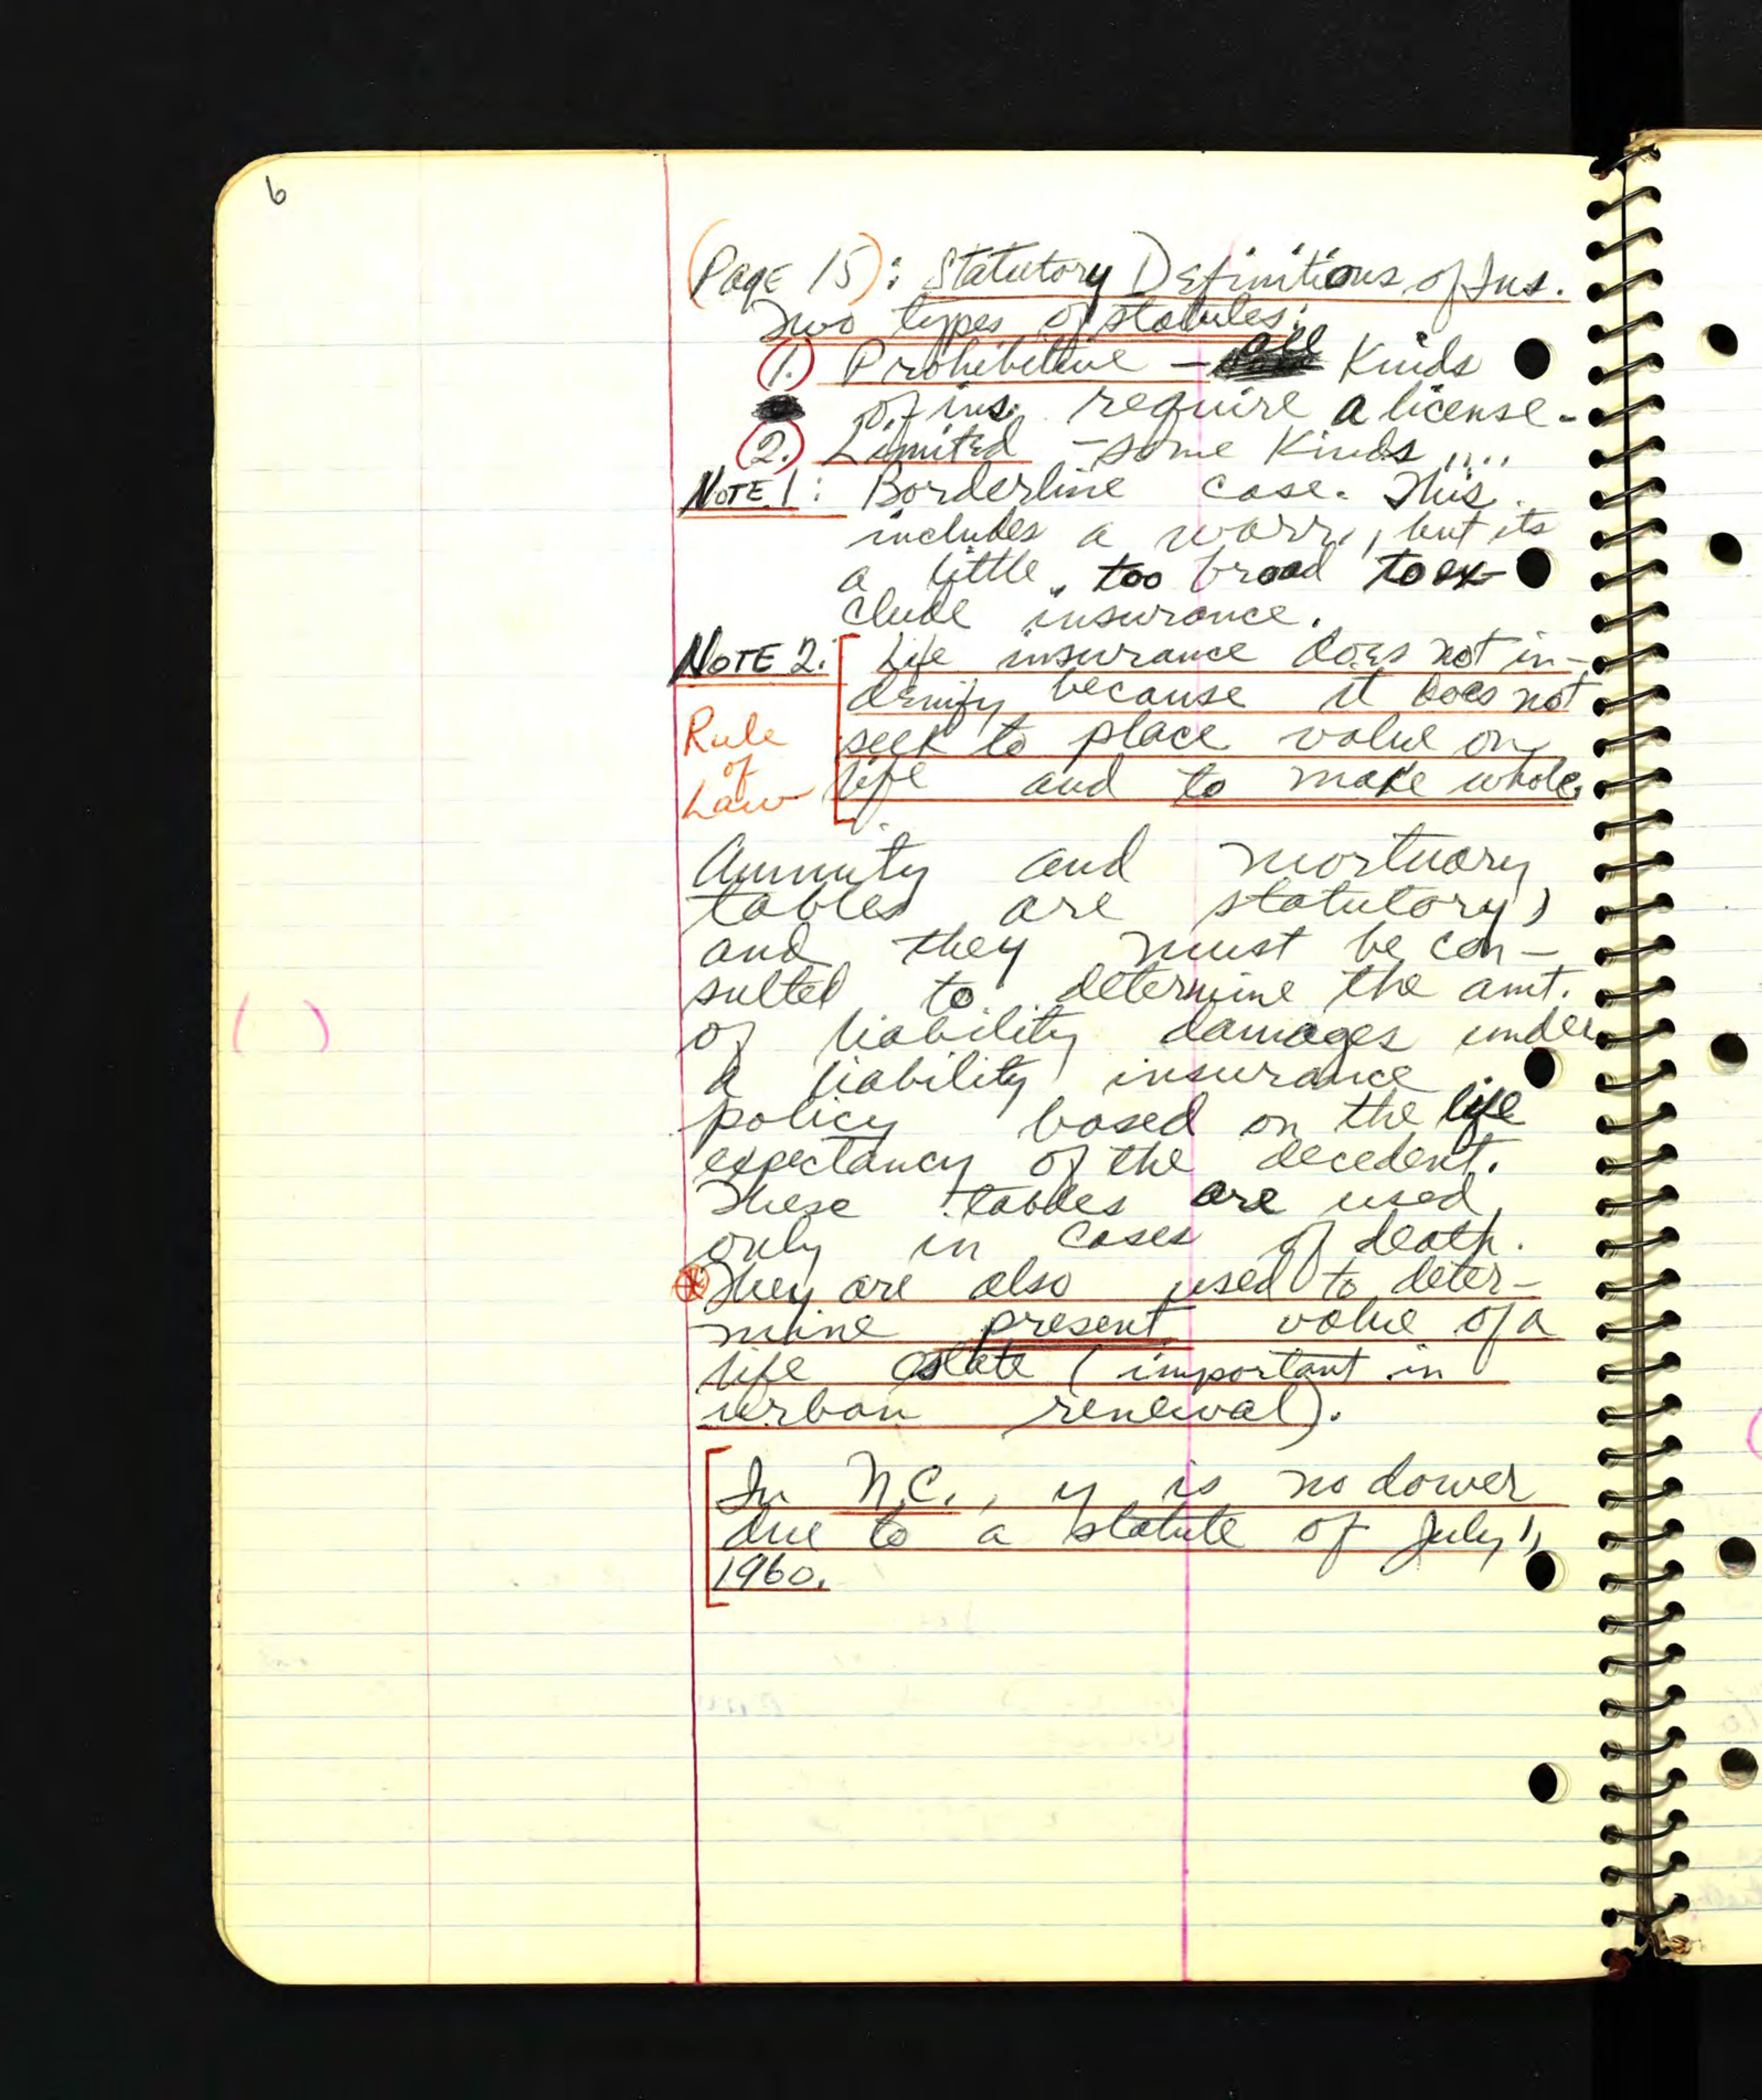 6
(Page 15): Statutory Definitions of Ins.
Two types of statutes:
(1.) Prohibitive - all Kinds
of ins. require a license.
(2.) Limited - some Kinds ....
NOTE 1: Borderline case. This
includes a warr., but its
a little too broad to ex-
clude insurance.
NOTE 2: Life insurance does not in-
demnify because it does not
seek to place value on
life and to make whole.
Rule
of
Law
Annuity and mortuary
tables are statutory,
and they must be con-
sulted to determine the amt.
of liability damages under
a liability insurance
policy based on the life
expectancy of the decedent.
These tables are used
only in cases of death.
They are also used to deter-
mine present value of a
life estate (important in
urban renewal).
In N.C., y is no dower
due to a statute of July 1,
1960.
( )